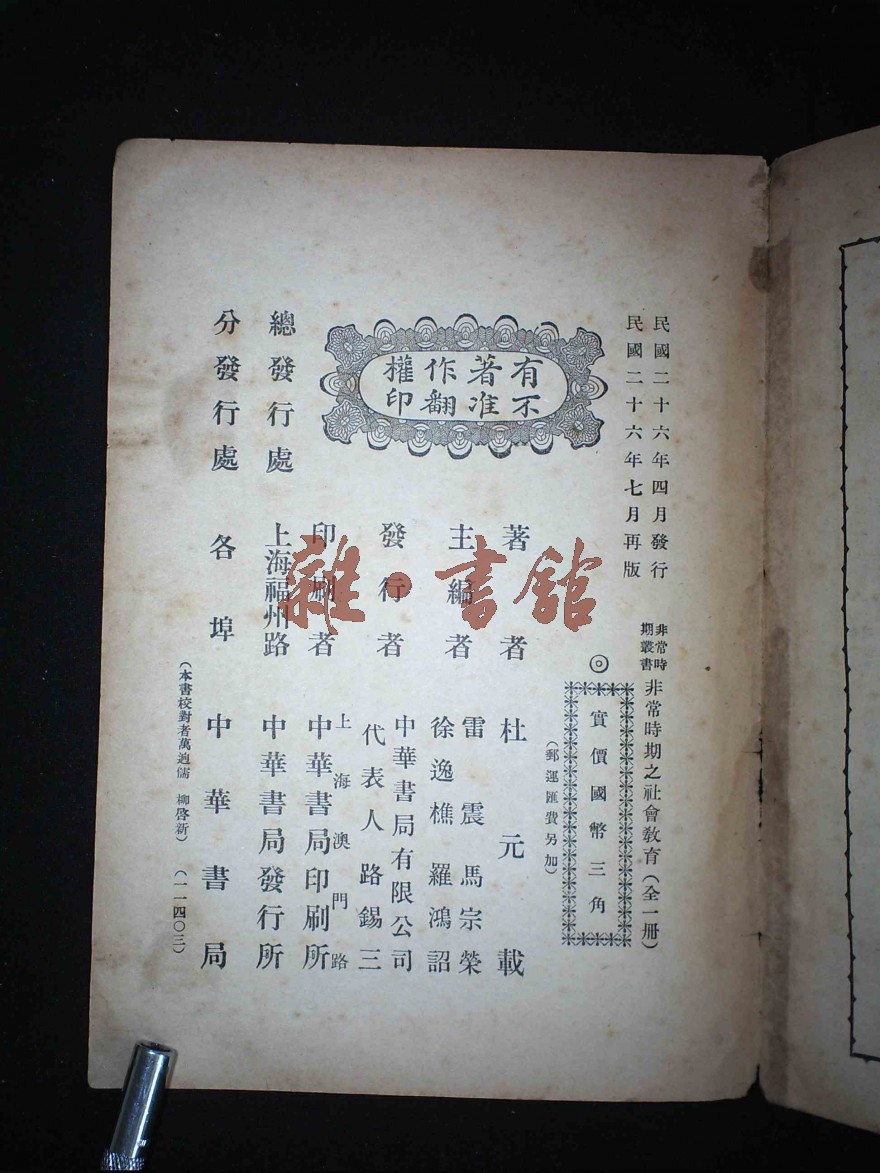 民國二十六年四月發行
民國二十六年七月再版
非常時期叢書
非常時期之社會教育（全一册）
◎
實價國幣三角
（郵運匯費另加）
有著作權
不准翻印
著者 杜元載
主編者 雷震 馬宗榮
徐逸樵 羅鴻詔
發行者 中華書局有限公司
代表人 路錫三
印刷者 上海澳門路
中華書局印刷所
總發行處 上海福州路 中華書局發行所
分發行處 各埠 中華書局
（本書校對者萬逈儒 柳啓新）
（一一四〇三）
雜·書館